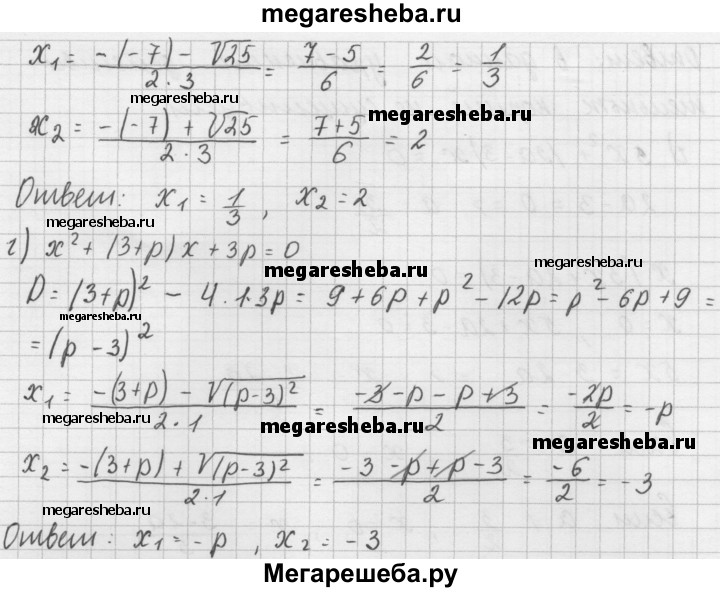 megaresheba.ru
x₁ = (-(-7) - √25)/(2·3) = (7-5)/6 = 2/6 = 1/3
megaresheba.ru
megaresheba.ru
x₂ = (-(-7) + √25)/(2·3) = (7+5)/6 = 2
megaresheba.ru
Ответ: x₁ = 1/3, x₂ = 2
megaresheba.ru
г) x² + (3+p)x + 3p = 0
megaresheba.ru
megaresheba.ru
D = (3+p)² - 4·1·3p = 9 + 6p + p² - 12p = p² - 6p + 9 =
megaresheba.ru
= (p - 3)²
x₁ = (-(3+p) - √(p-3)²)/(2·1) = (-3 - p - p + 3)/2 = -2p/2 = -p
megaresheba.ru
megaresheba.ru
megaresheba.ru
x₂ = (-(3+p) + √(p-3)²)/(2·1) = (-3 - p + p - 3)/2 = -6/2 = -3
megaresheba.ru
Ответ: x₁ = -p, x₂ = -3
Мегарешеба.ру